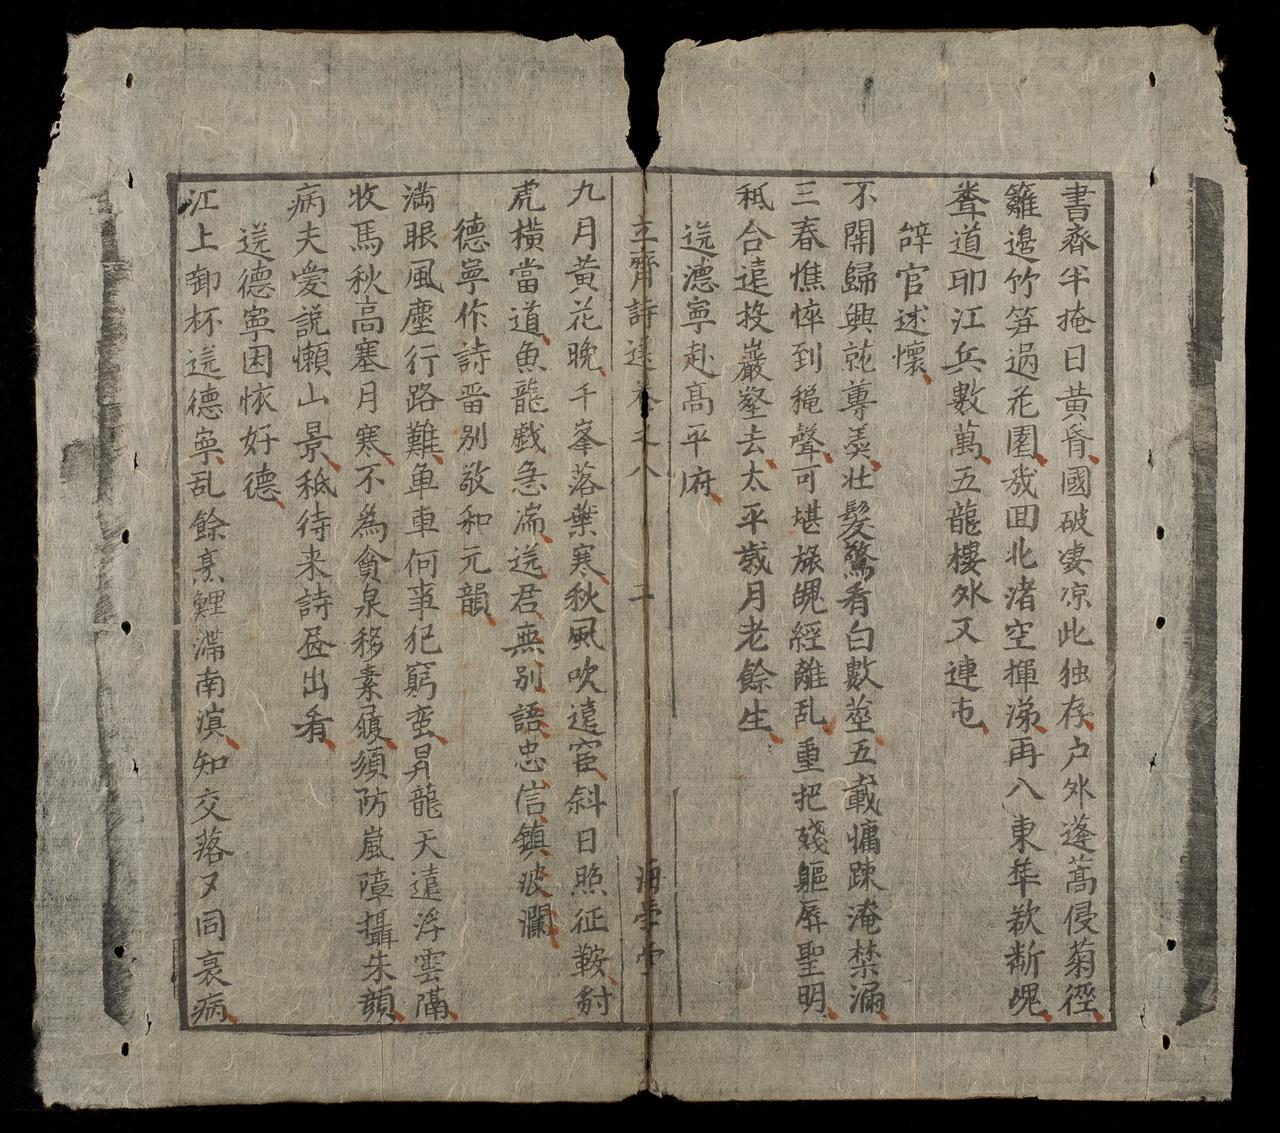 書齋半掩日黃昏國破凄凉此独存户外蓬蒿侵菊徑
籬邉竹笋過花園幾回北渚空揮涕再八東華欲断魂
聋道耶江兵數萬五龍樓外又連屯
辞官述懷
不開歸興說蓴羡壮髮驚看白數莖五載慵踈淹禁漏
三春憔悴到稅聲可堪旅魄經離乱重把殘軀辱聖明
秪合遠投巖壑去太平歲月老餘生
送德寧赴髙平府
立齊詩選卷之八
二
海學堂
九月黃花晚千峯落葉寒秋風吹遠宦斜日照征鞍豺
虎橫當道魚龍戲急湍送君無别語忠信鎮波瀾
德寧作詩畱別敬和元韻
満眼風塵行路難車車何事犯窮蛮昇龍天遠浮雲隔
牧馬秋高塞月寒不為貪泉移素履須防嵐障攝朱顏
病夫愛説懶山景秪待来詩昼出看
送德寧因恢好德
江上卸杯送德寧乱餘烹鯉滯南溟知交落又同哀病